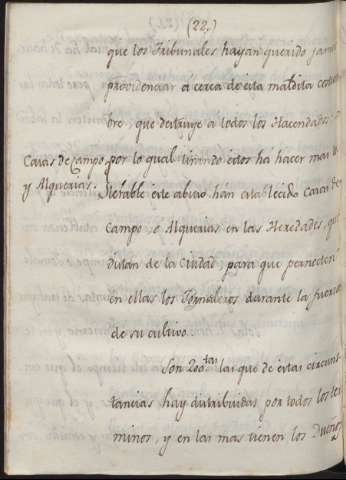 (22,)
que los Tribunales hayan querido jamas
providenciar á cerca de esta maldita costum
bre, que destruye a todos los Hacendados:
Casas de campo,
y Alquerias.
por lo qual tirando estos ha hacer mas
tolerable este abuso hán establecido Casas de
campo, o Alquerias en las Heredades, que
distan de la Ciudad, para que pernocten
en ellas los Jornaleros durante la fuerza
de su cultivo.
Son 200 las que de estas circuns
tancias hay distribuidas por todos los ter
minos, y en las mas tienen los Dueños